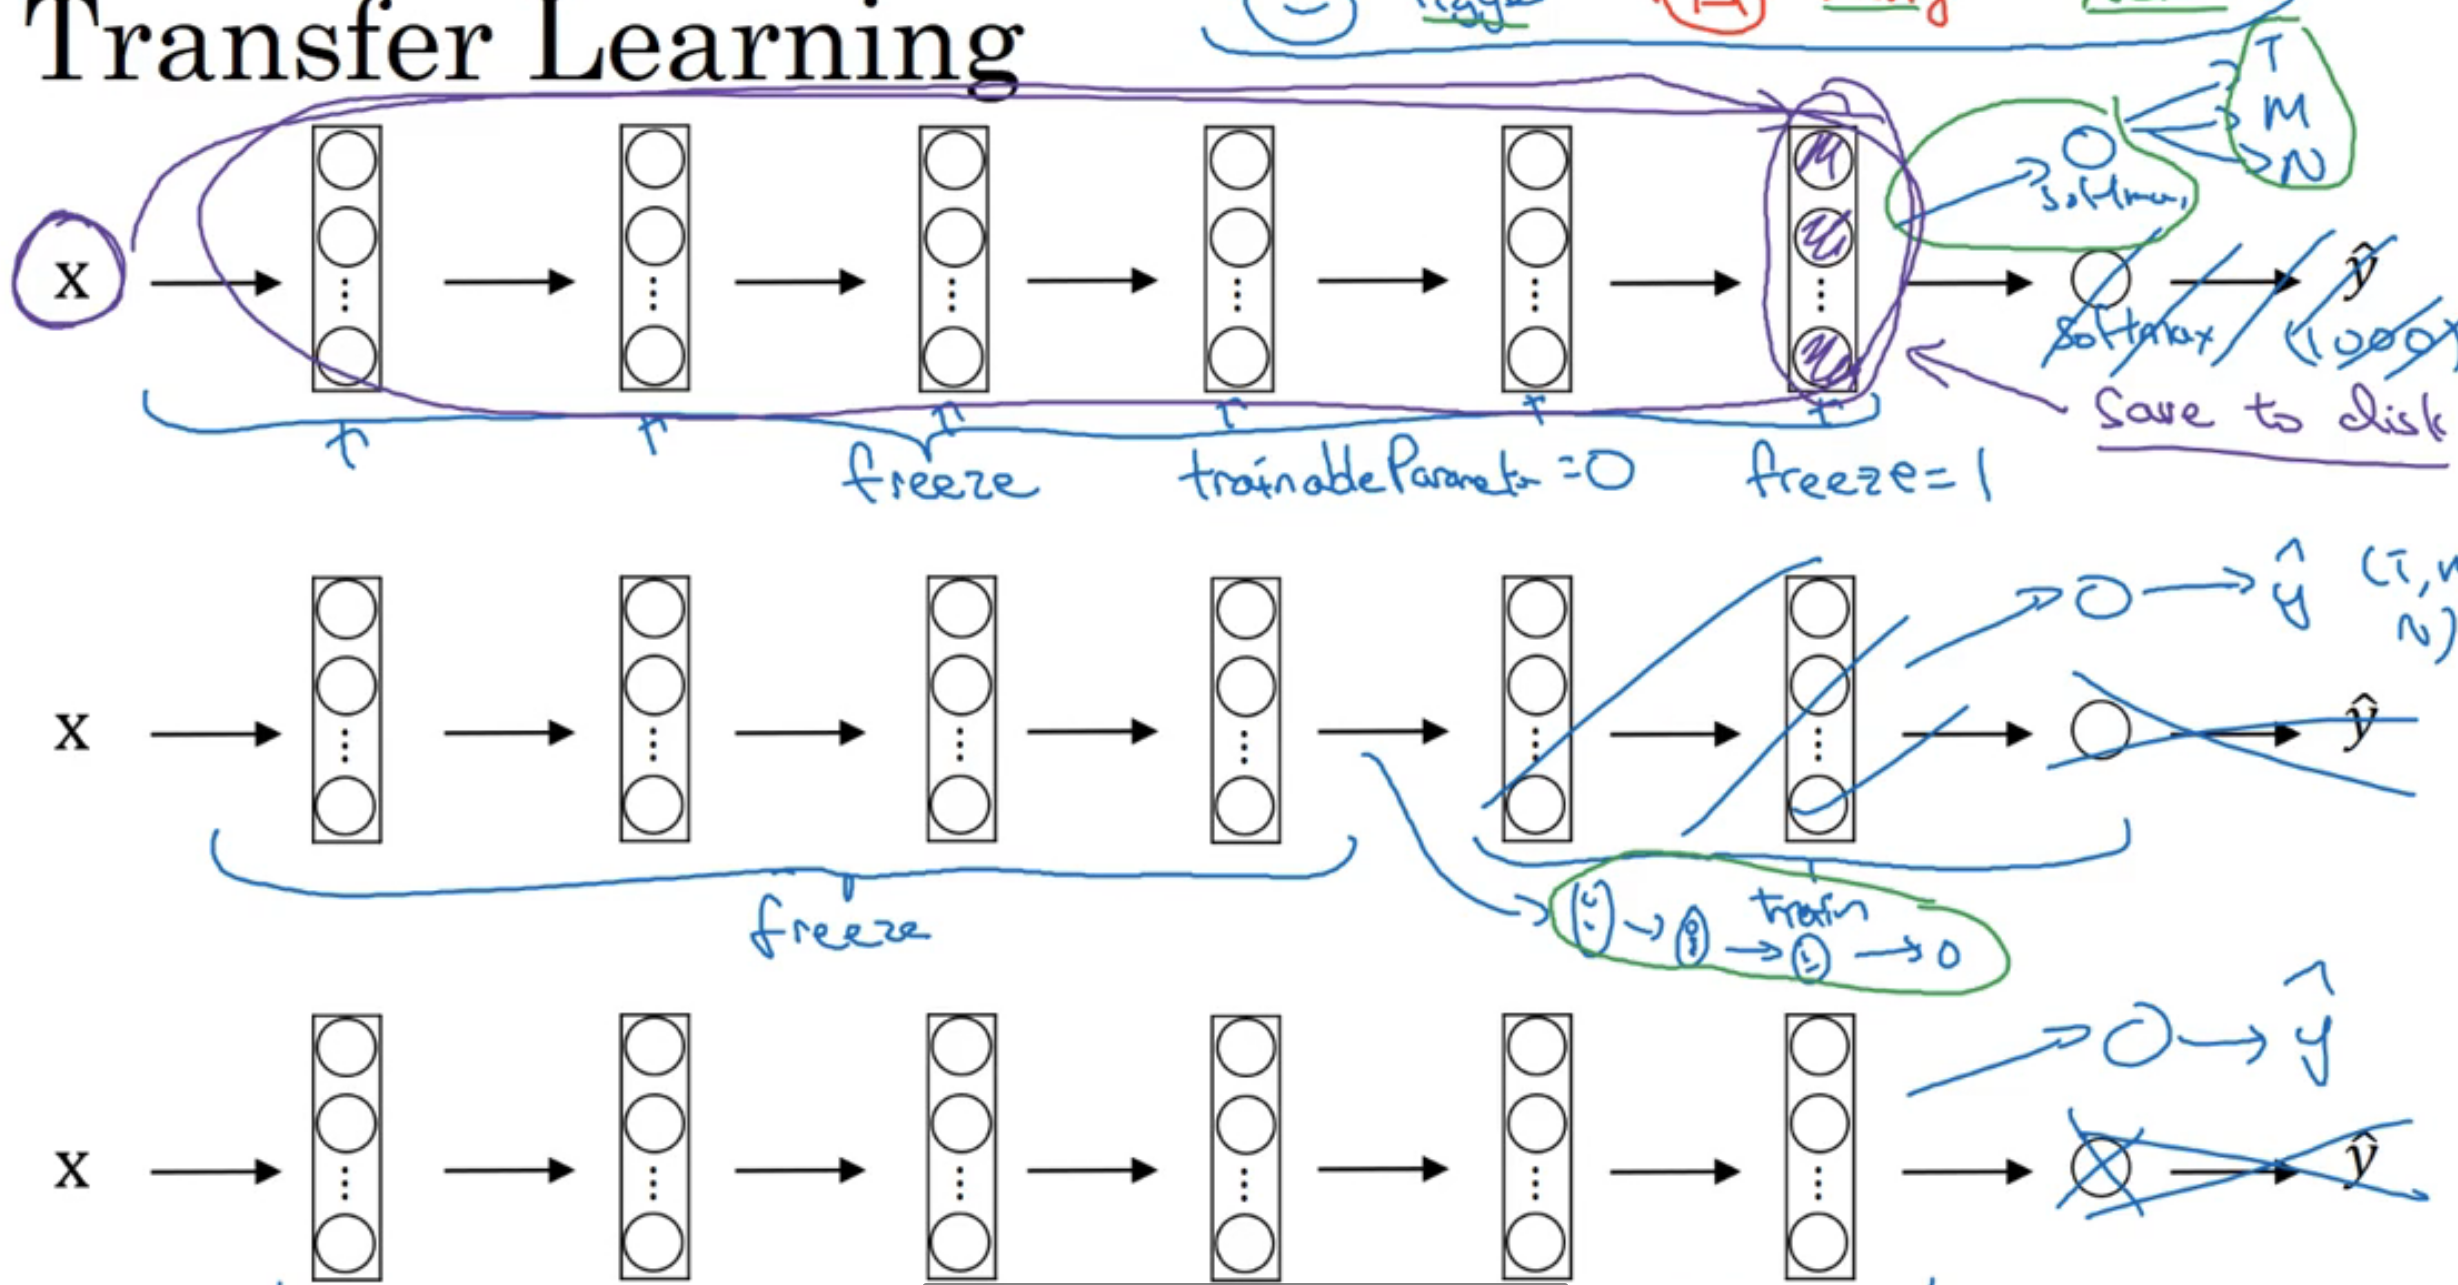 Transfer Learning
T
M
N
softmax
x
ŷ
softmax
(1000)
Save to disk
freeze
trainableParameter = 0
freeze = 1
ŷ
N)
x
ŷ
freeze
train
ŷ
x
ŷ